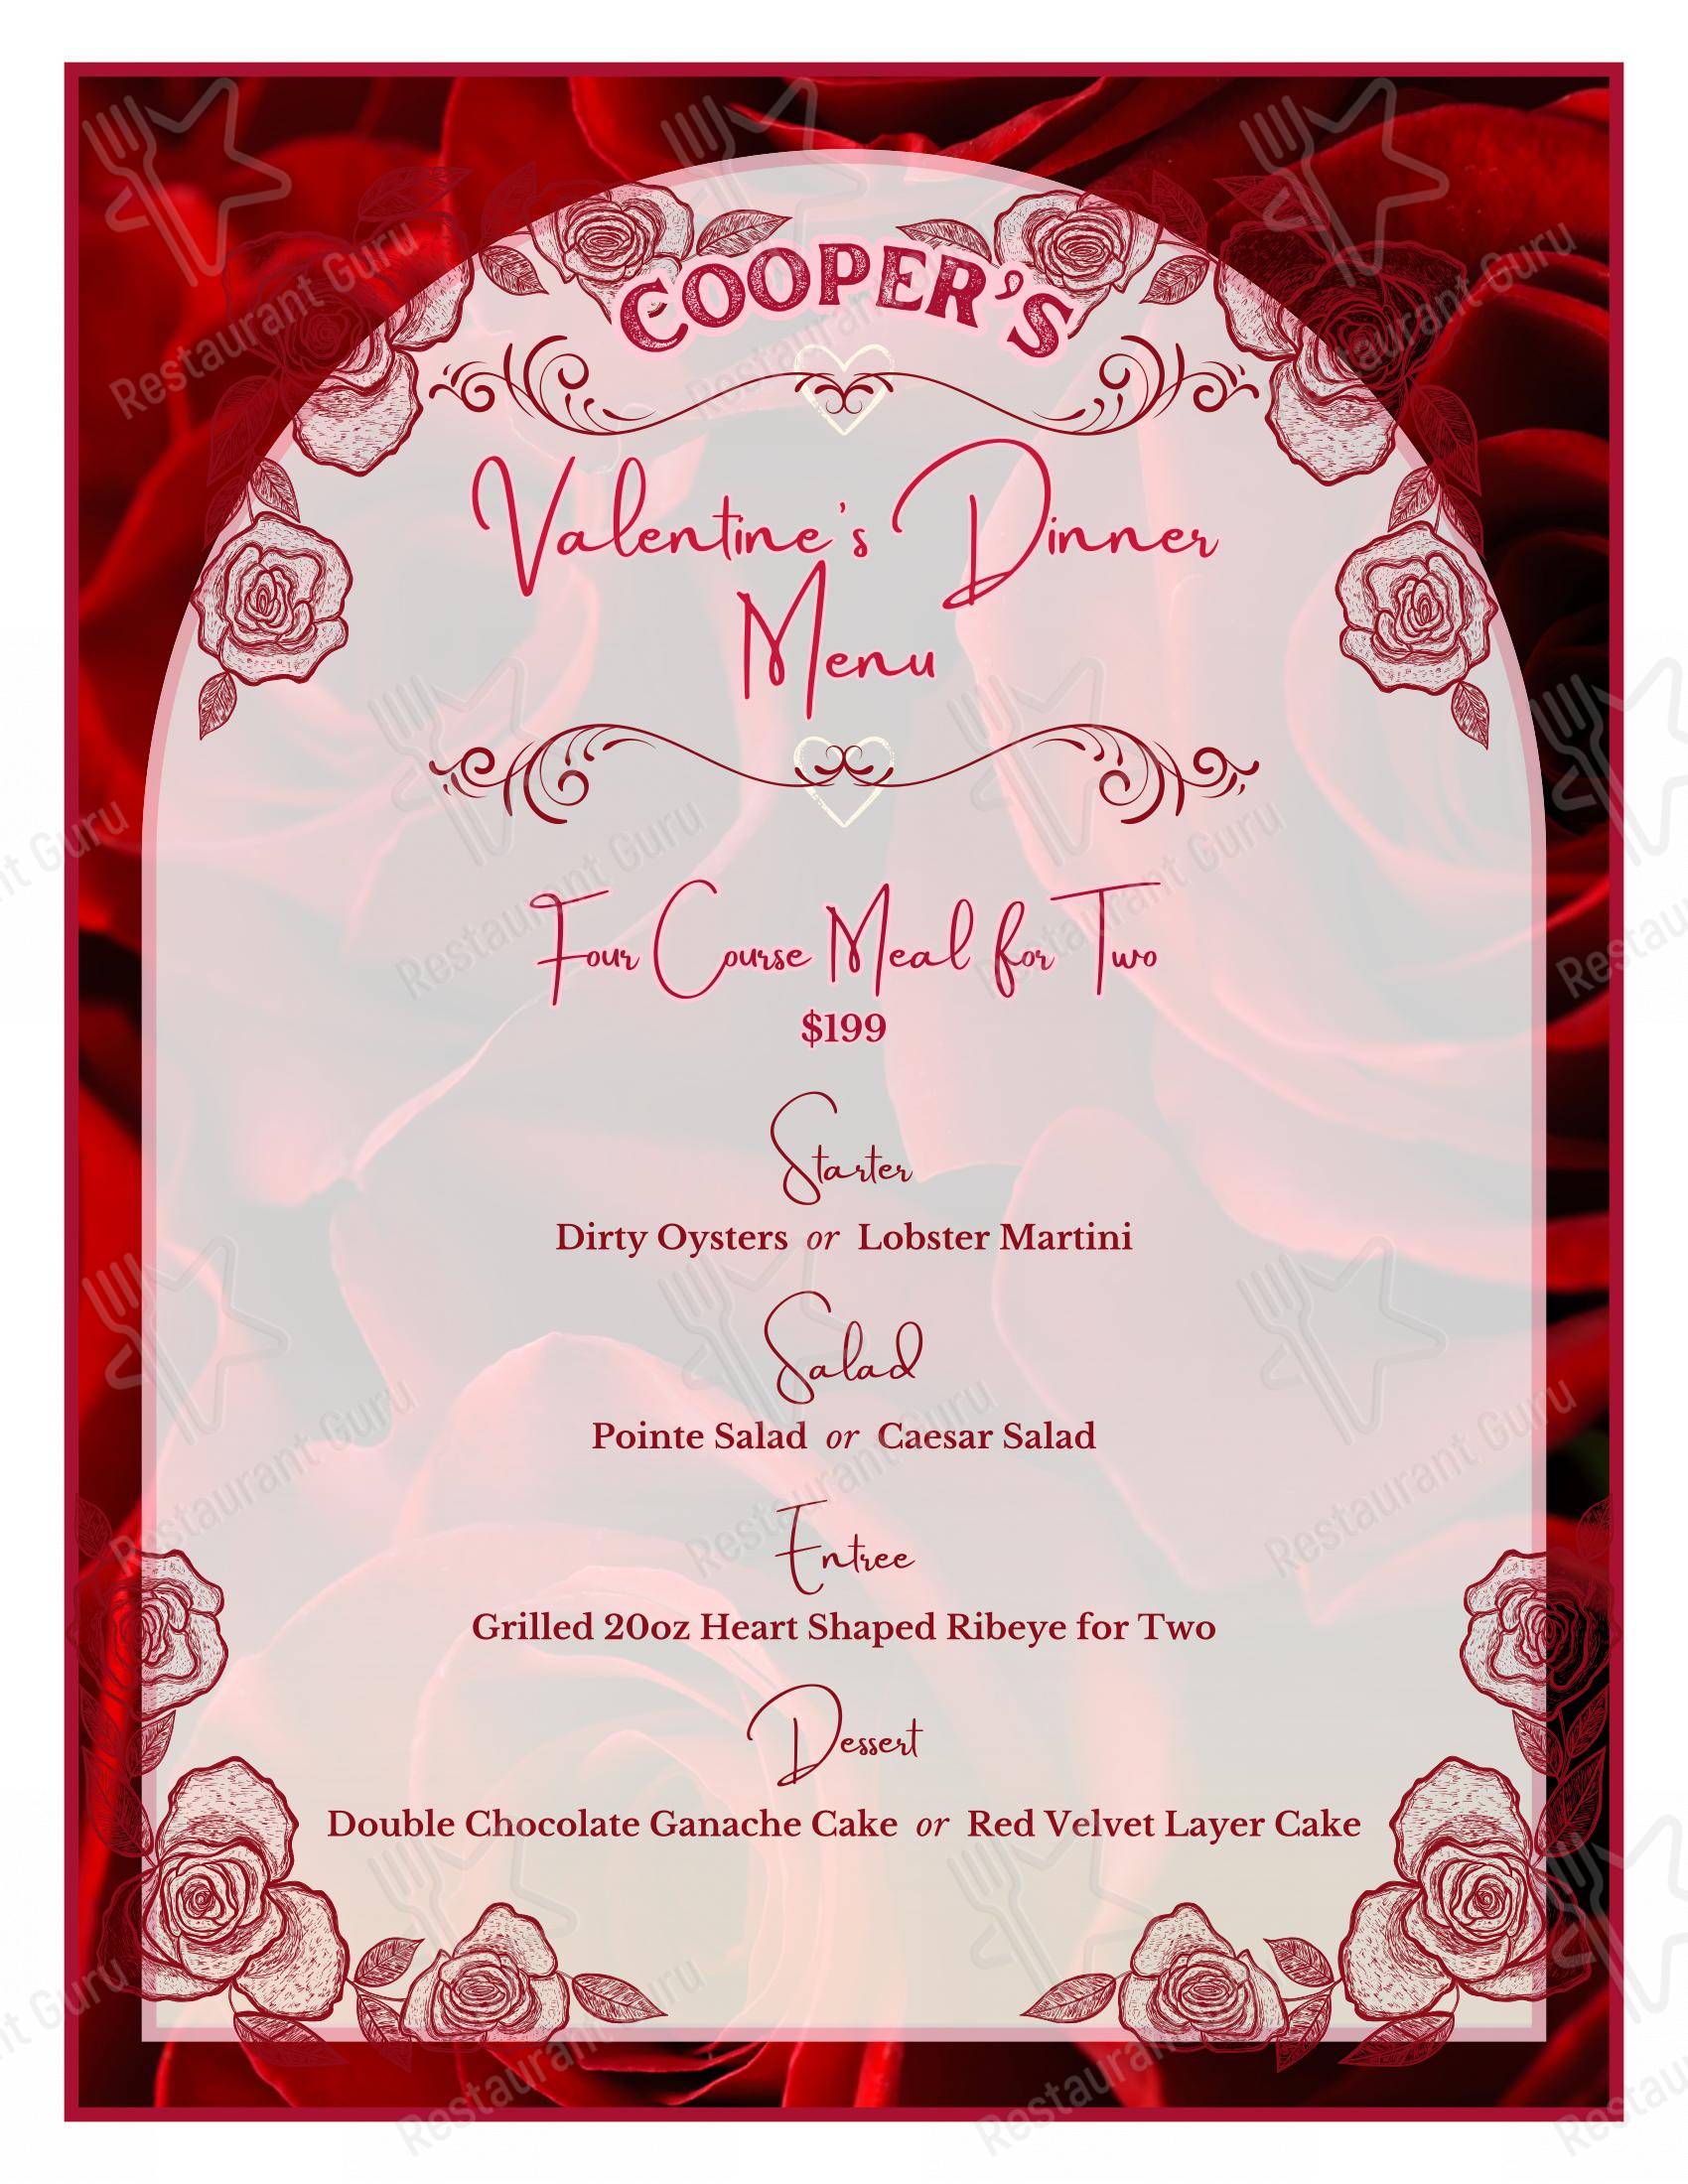 COOPER'S
Valentine's Dinner
Menu
Four Course Meal for Two
$199
Starter
Dirty Oysters or Lobster Martini
Salad
Pointe Salad or Caesar Salad
Entree
Grilled 20oz Heart Shaped Ribeye for Two
Dessert
Double Chocolate Ganache Cake or Red Velvet Layer Cake
Restaurant Guru